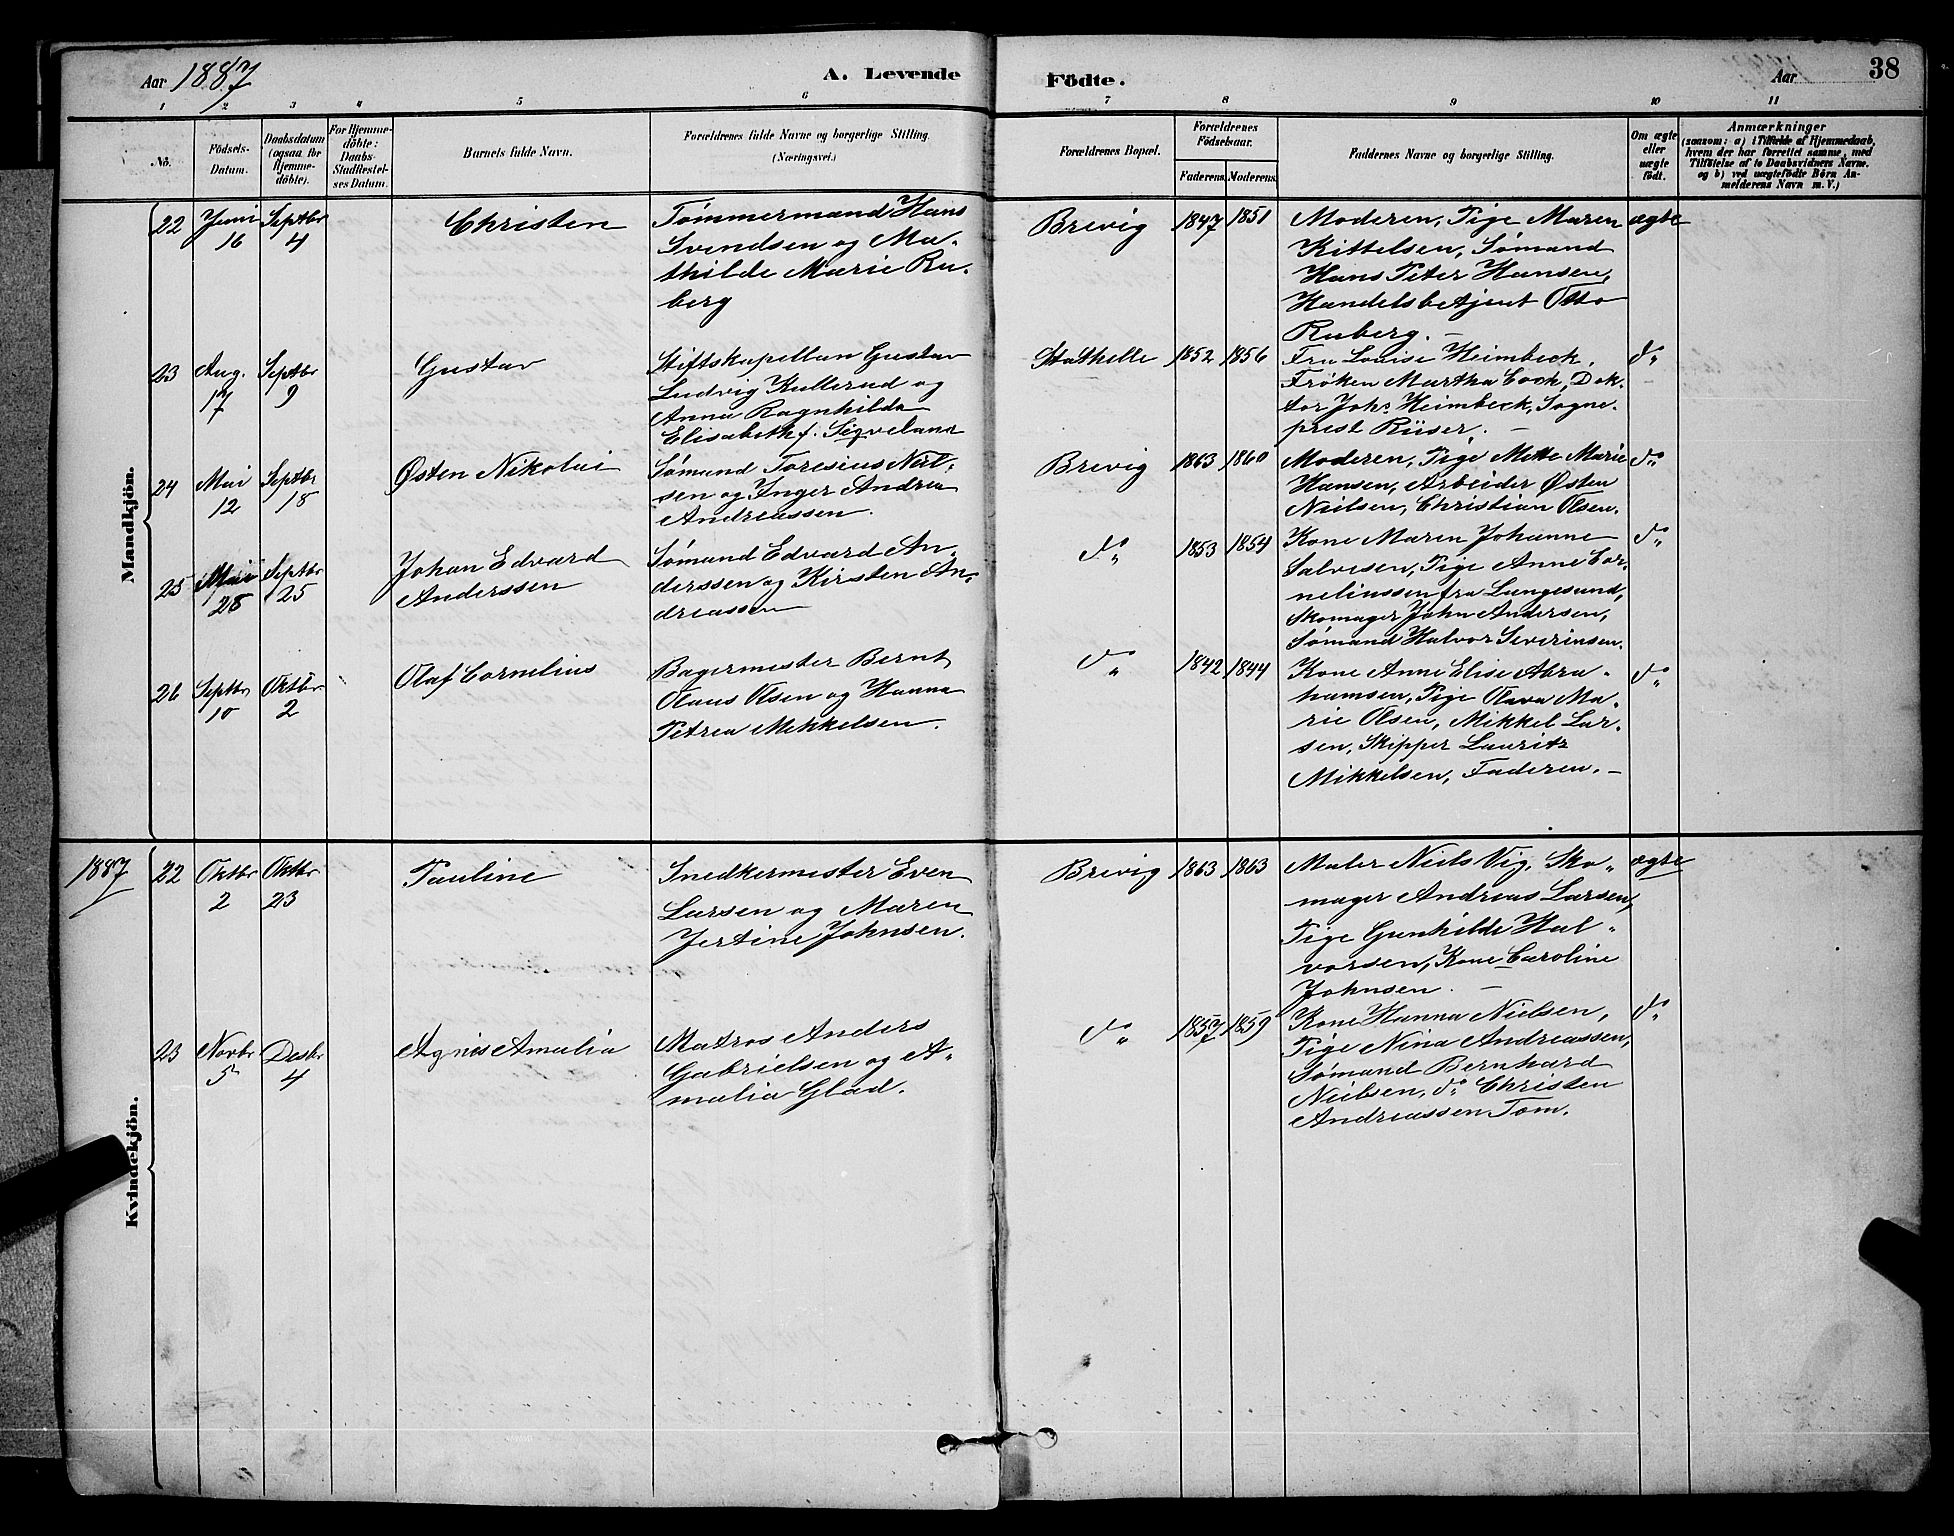 Aar 1887
A. Levende Födte.
Aar
38
1 2 3 4 5 6 7 8 9 10 11
No.
Födsels-
Datum.
Daabsdatum
(ogsaa for
Hjemme-
döbte).
For Hjemme-
döbte:
Daabs-
Stadfæstel-
ses Datum.
Barnets fulde Navn.
Forældrenes fulde Navne og borgerlige Stilling.
(Næringsvei.)
Forældrenes Bopæl.
Forældrenes
Födselsaar.
Faderens. Moderens.
Faddernes Navne og borgerlige Stilling.
Om ægte
eller
uægte
födt.
Anmærkninger
(saasom: a) i Tilfælde af Hjemmedaab,
hvem der har forrettet samme, med
Tilföielse af to Daabsvidners Navne.
og b) ved uægtefödte Börn An-
melderens Navn m. V.)
Mandkjön.
22
Juni
16
Septbr
4
Christen
Tømmermand Hans
Svendsen og Ma-
thilde Marie Ru-
berg
Brevig
1847
1851
Moderen, Pige Maren
Kittelsen, Sømand
Hans Peter Hansen,
Handelsbetjent Otto
Ruberg. —
ægte
23
Aug.
17
Septbr
9
Gustav
Stiftskapellan Gustav
Ludvig Kullerud og
Anna Ragnhilda
Elisabeth f. Sigveland
Stathelle
1852
1856
Fru Louise Heimbeck,
Frøken Martha Cock, Dok-
tor Johs Heimbeck, Sogne-
prest Riiser. —
do
24
Mai
12
Septbr
18
Østen Nikolai
Sømand Toresius Niel-
sen og Inger Andrea
Andreassen.
Brevig
1863
1860
Moderen, Pige Mette Marie
Hansen, Arbeider Østen
Nielsen, Christian Olsen.
do
25
Mai
28
Septbr
25
Johan Edvard
Anderssen
Sømand Edvard An-
derssen og Kirsten An-
dreassen
do
1853
1854
Kone Maren Johanne
Salvesen, Pige Anne Cor-
neliussen fra Langesund,
Skomager John Andersen,
Sømand Halvor Severinsen.
do
26
Septbr
10
Oktbr
2
Olaf Cornelius
Bagermester Bernt
Olaus Olsen og Hanna
Petrea Mekkelsen.
do
1842
1844
Kone Anne Elise Abra-
hamsen, Pige Olava Ma-
rie Olsen, Mikkel Lar-
sen, Skipper Lauritz
Mikkelsen, Faderen. —
do
1887
Kvindekjön.
22
Oktbr
2
Oktbr
23
Pauline
Snedkermester Even
Larsen og Maren
Jertine Johnsen.
Brevig
1863
1863
Maler Niels Vig, Sko-
mager Andreas Larsen,
Pige Gunhilde Hal-
vorsen, Kone Caroline
Johnsen. —
ægte
23
Novbr
5
Desbr
4
Agnes Amalia
Matros Anders
Gabrielsen og A-
malia Glad.
do
1857
1859
Kone Hanna Nielsen,
Pige Nina Andreassen,
Sømand Bernhard
Nielsen, do Christen
Andreassen Tom.
do